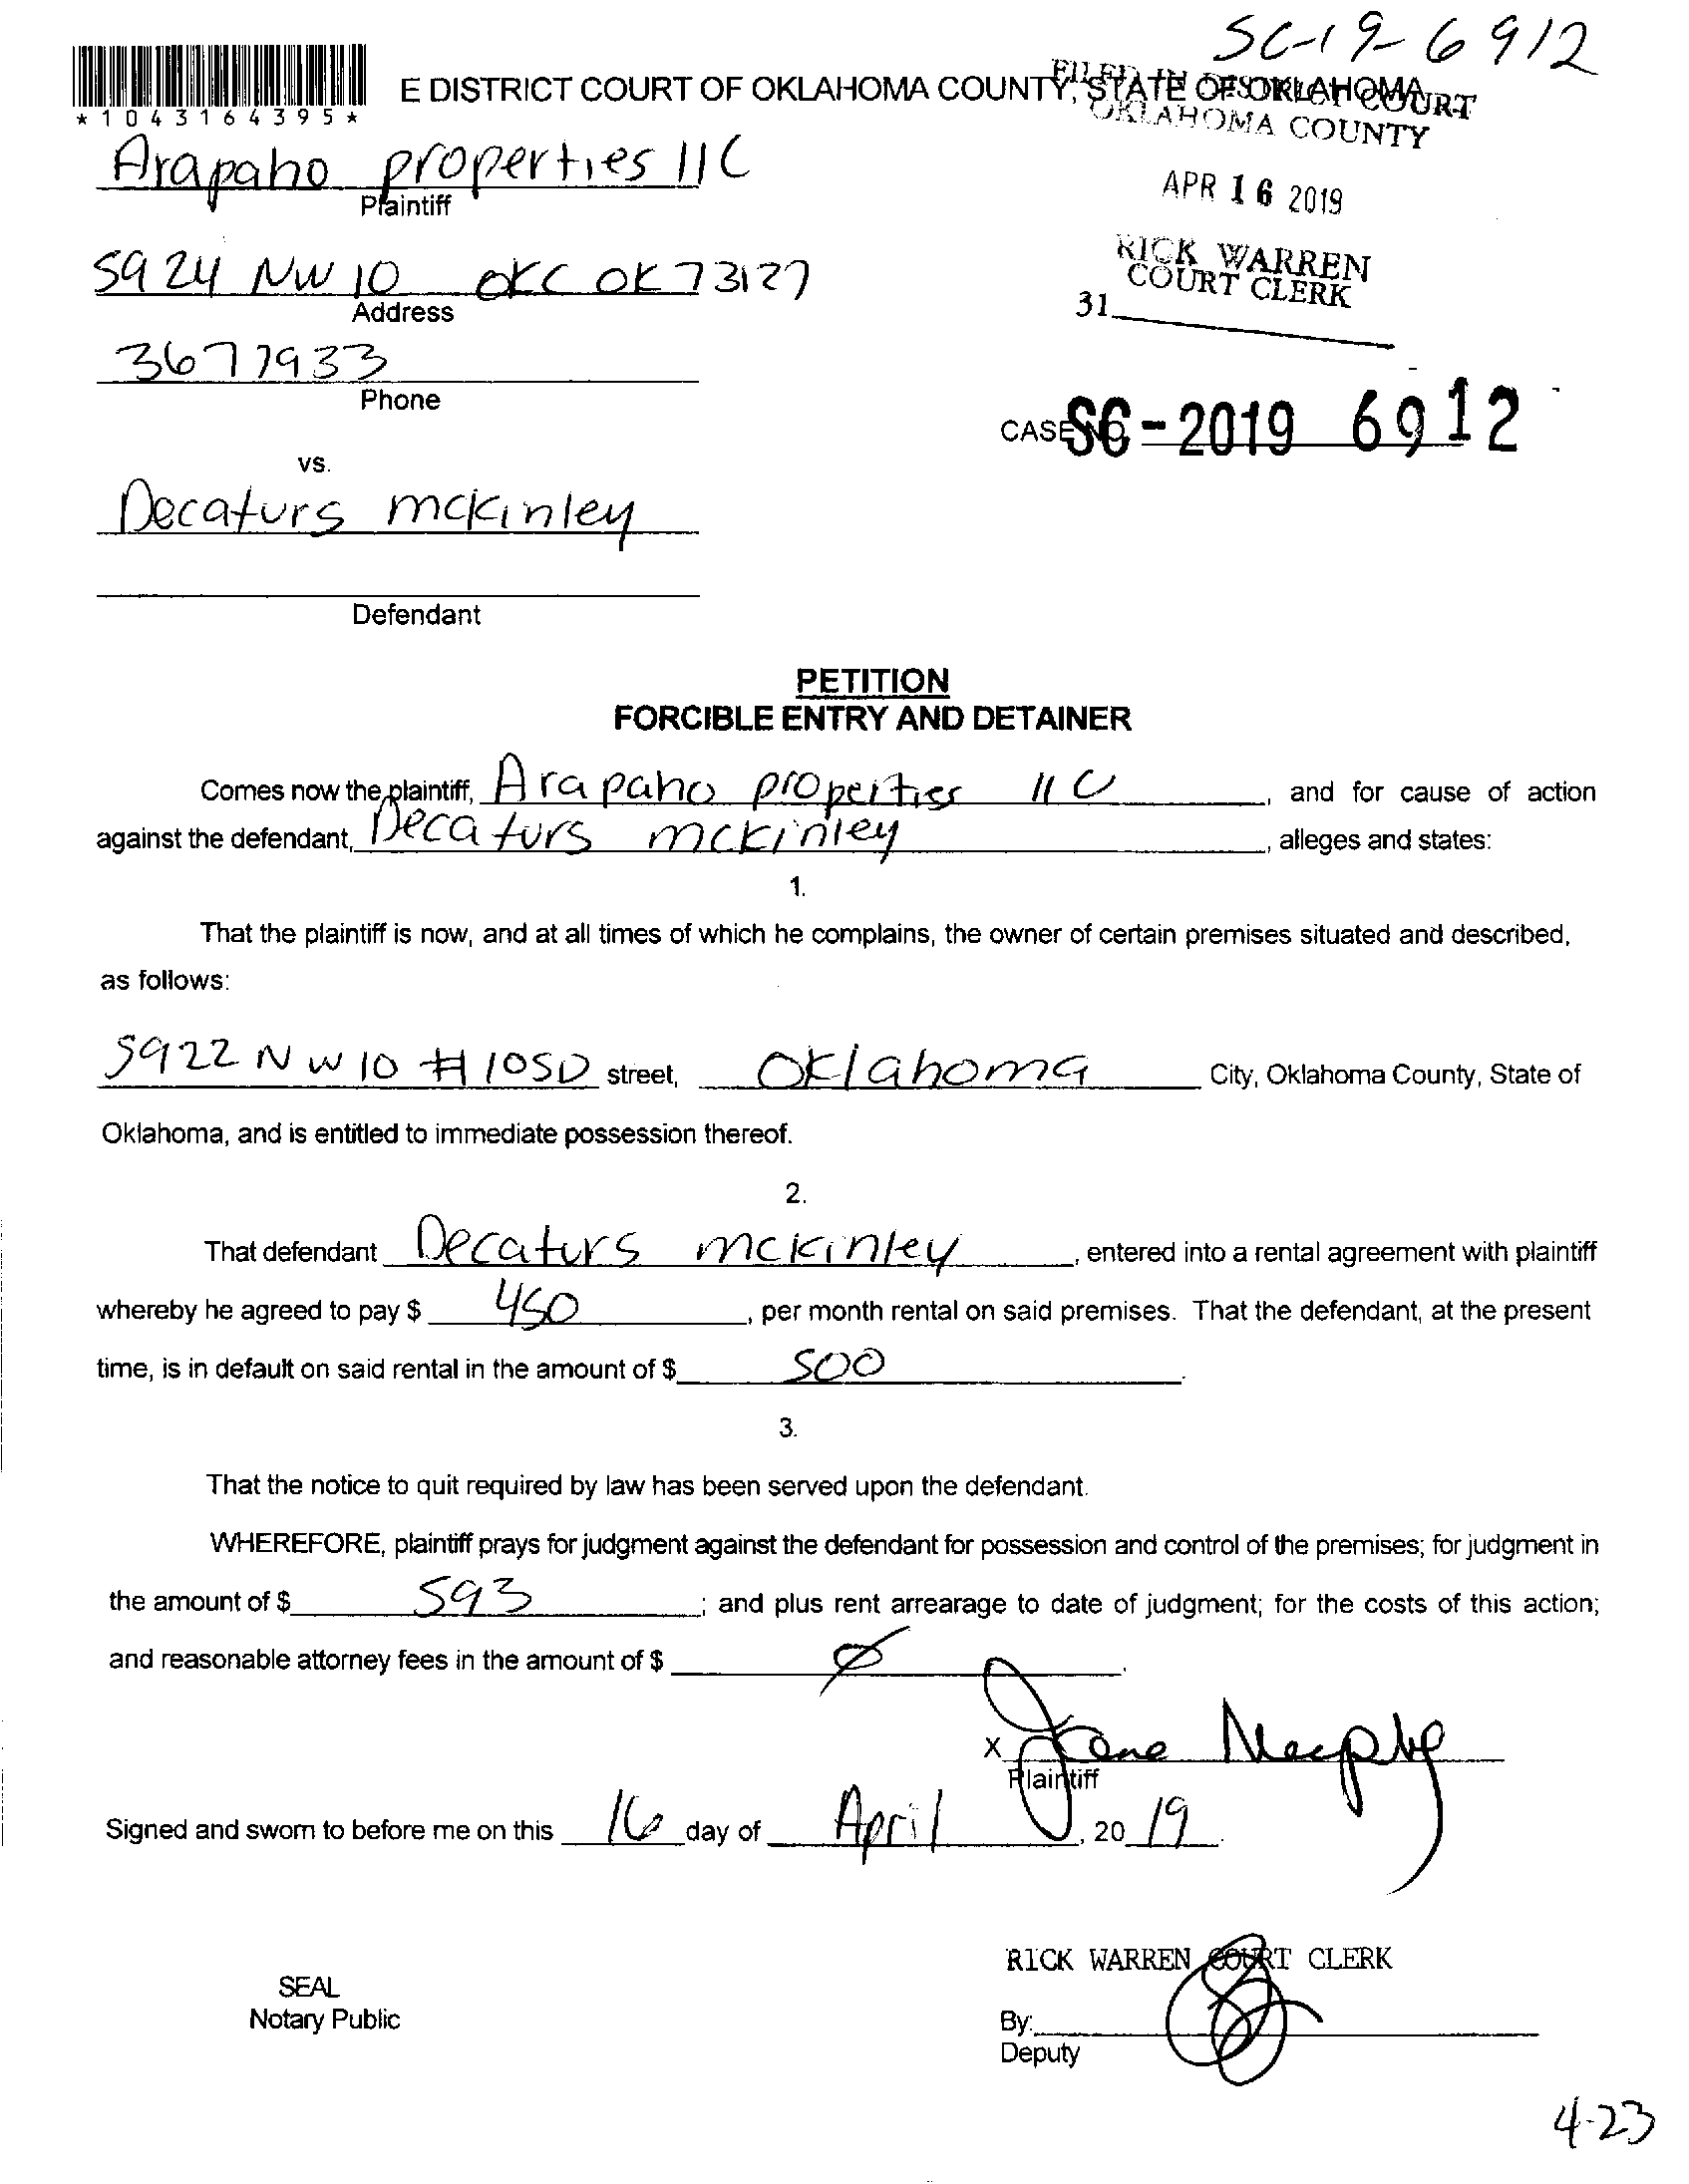 SC-19-6912
E DISTRICT COURT OF OKLAHOMA COUNTY, STATE OF OKLAHOMA
FILED IN DISTRICT COURT
OKLAHOMA COUNTY
*1043164395*
Arapaho properties llC
Plaintiff
APR 16 2019
5924 NW 10 OKC OK 73127
Address
RICK WARREN
COURT CLERK
31
3677933
Phone
CASE NO. SC-2019 6912
vs.
Decaturs mckinley
Defendant
PETITION
FORCIBLE ENTRY AND DETAINER
Comes now the plaintiff, Arapaho properties llC, and for cause of action
against the defendant, Decaturs mckinley, alleges and states:
1.
That the plaintiff is now, and at all times of which he complains, the owner of certain premises situated and described,
as follows:
5922 NW 10 # 105D street, Oklahoma City, Oklahoma County, State of
Oklahoma, and is entitled to immediate possession thereof.
2.
That defendant Decaturs mckinley, entered into a rental agreement with plaintiff
whereby he agreed to pay $ 450, per month rental on said premises. That the defendant, at the present
time, is in default on said rental in the amount of $ 500.
3.
That the notice to quit required by law has been served upon the defendant.
WHEREFORE, plaintiff prays for judgment against the defendant for possession and control of the premises; for judgment in
the amount of $ 593; and plus rent arrearage to date of judgment; for the costs of this action;
and reasonable attorney fees in the amount of $ Ø.
X Jane
Plaintiff
Signed and sworn to before me on this 16 day of April, 20 19.
RICK WARREN COURT CLERK
SEAL
Notary Public
By:
Deputy
4-23